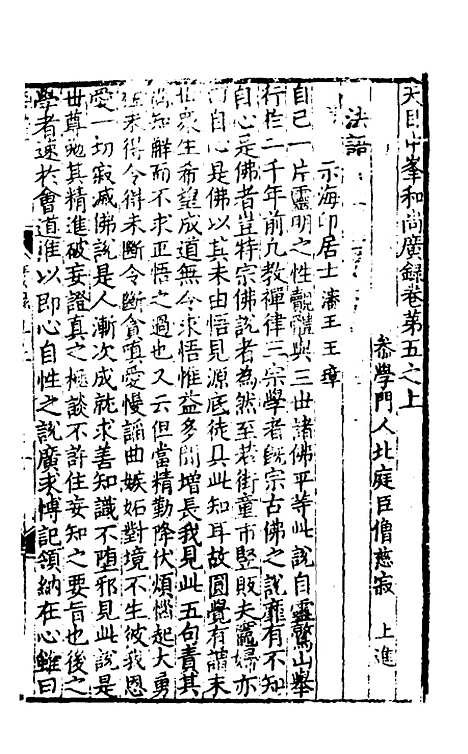 天目中峯和尚廣録卷第五之上
叅學門人北庭臣僧慈寂 上進
法語
示海印居士 瀋王王璋
自己一片靈明之性覿體與三世諸佛平等此說自靈鷲山舉
行扵二千年前凡教禪律三宗學者旣宗古佛之說靡有不知
自心是佛者豈特宗佛說者為然至若街童市竪販夫竈婦亦
自心是佛以其未由悟見源底徒具此知耳故圓覺有謂末
衆生希望成道無令求悟惟益多聞增長我見此五句責其
知解而不求正悟之過也又云但當精勤降伏煩惱起大勇
未得令得未斷令斷貪嗔愛慢諂曲嫉妬對境不生彼我恩
愛一切寂滅佛說是人漸次成就求善知識不堕邪見此說是
世尊勉其精進破妄證真之極談不許住妄知之要旨也後之
學者速扵會道惟以即心自性之說廣求愽記領納在心雖曰